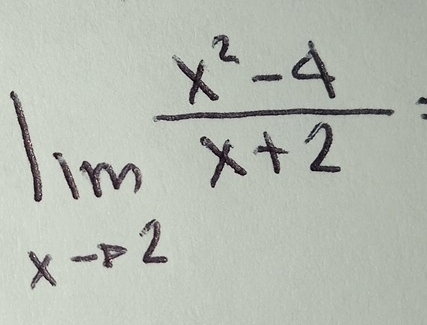 lim x→2 (x² - 4)/(x + 2) =